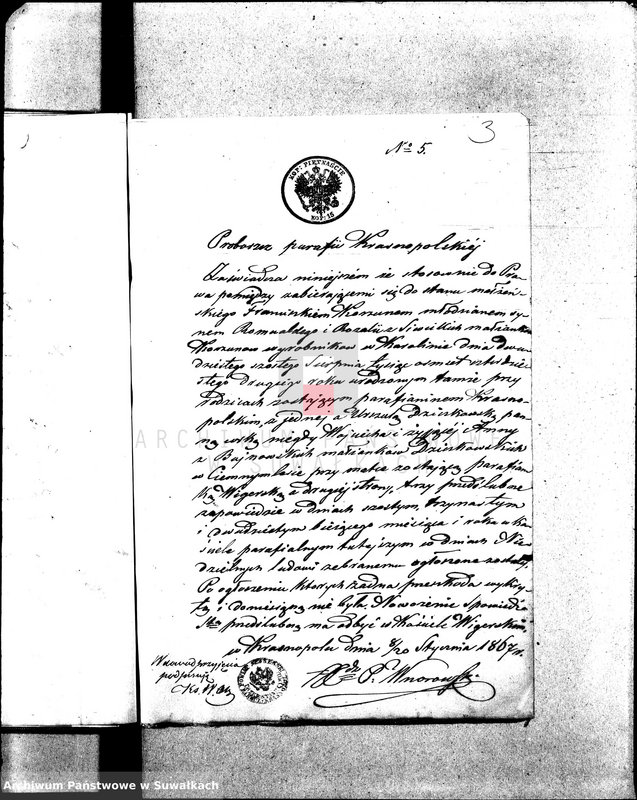 3
No 5.
KOP: PIĘTNAŚCIE
KOP: 15
Proboszcz parafii Krasnopolskiéj
Zaświadcza niniejszém że stosownie do Pra-
wa pomiędzy zabierającemi się do stanu małżeń-
skiego Franciszkiem Korzunem młodzianem sy-
nem Romualdego i Rozalii z małżonków
Korzunow wyrobników w Karolinie dnia dwu-
dziestego szóstego Sierpnia tysiąc osmset czterdzie-
stego drugiego roku urodzonym tamże przy
rodzicach zostającym parafianinem Krasno-
polskim, z jednéj a Urszulą Dzienkowską pan-
ną córką niegdy Wojciecha i żyjącéj Anny
z Bujnowskich małżonków Dzienkowskich
w Ciemnymlasie przy matce zostającą parafian-
ką Wigerską z drugiéj strony, trzy przedślubne
zapowiedzie w dniach szóstym, trzynastym
i dwudziestym bieżącego miesiąca i roku w ko-
ściele parafialnym tutejszym w dniach Nie-
dzielnych ludowi zebranemu ogłoszone zostały,
Po ogłoszeniu których żadna przeszkoda wykry-
tą i doniesioną nie była. Nowożeniec spowiedź
Stą przedślubną ma odbyć w Kościele Wigerskim,
w Krasnopolu dnia 8/20 Stycznia 1867 r.
W dowód przyjęcia
podpisuję
Ks. W.
Xdz P. Wnorowski
ARCHIWUM PAŃSTWOWE
W SUWAŁKACH
Archiwum Państwowe w Suwałkach